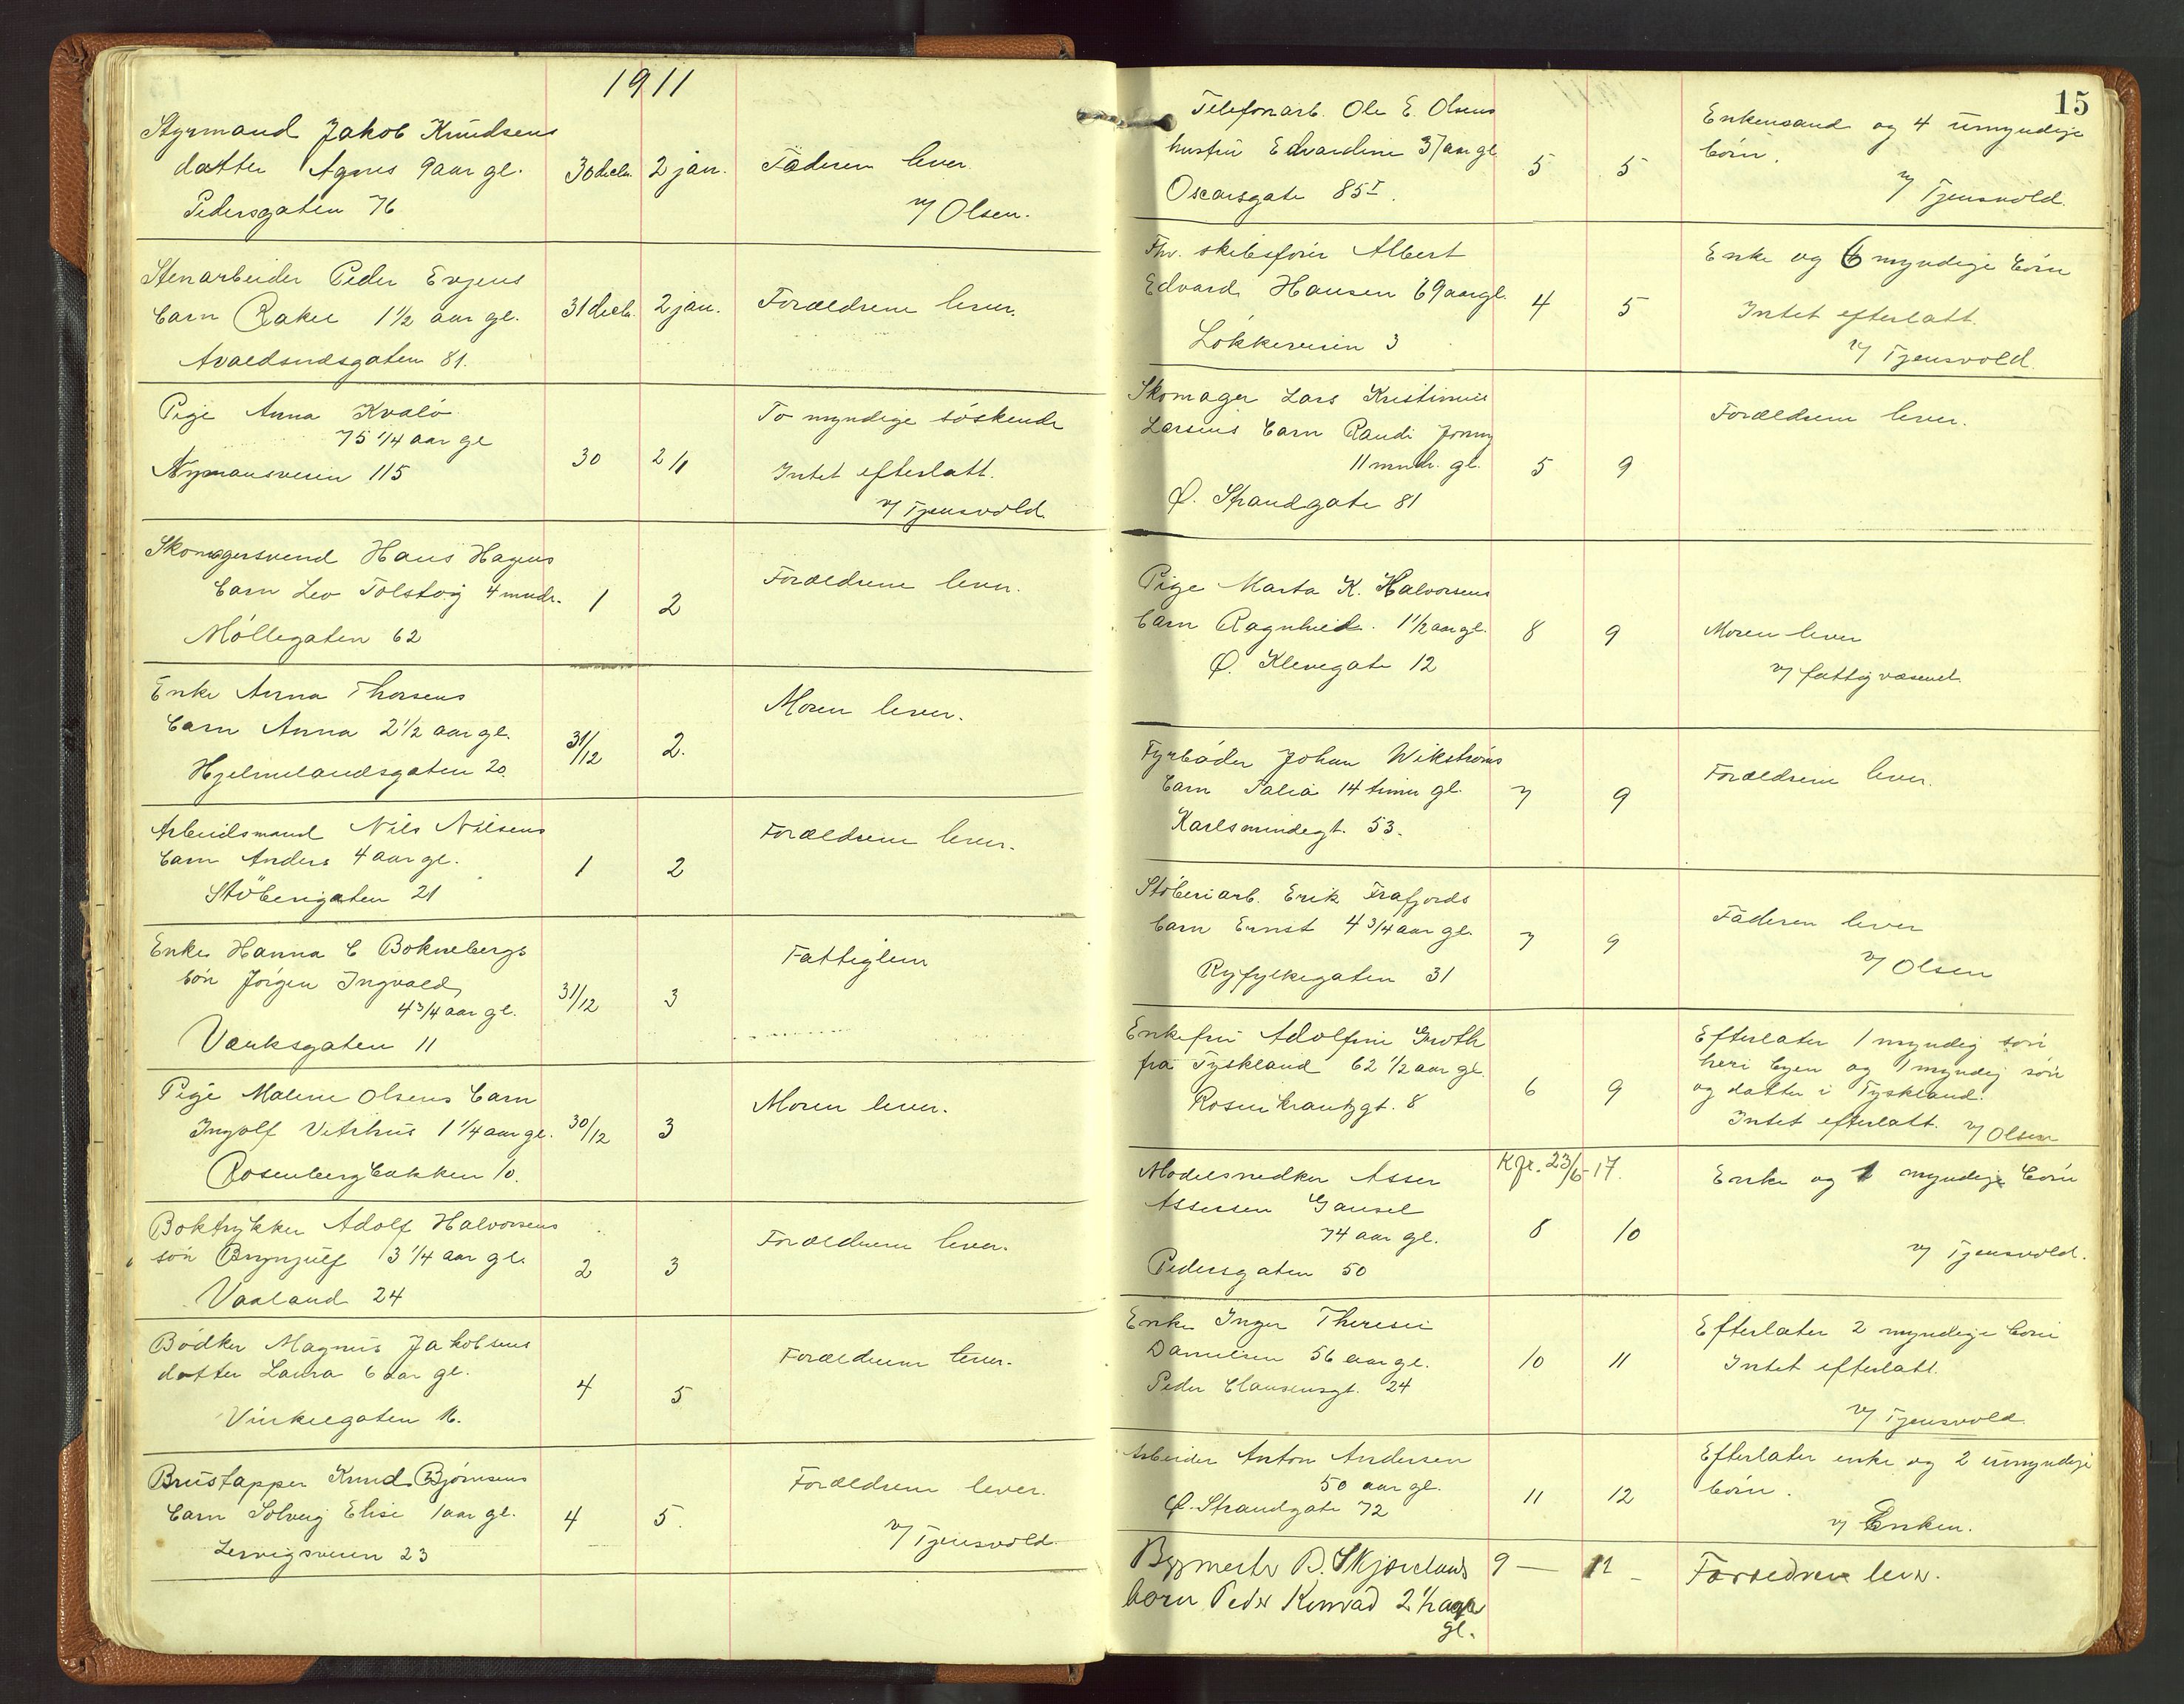 1911
Styrmand Jakob Knudsens
datter Agnes 9 aar gl.
Pedersgaten 76
30 decb.
2 jan.
Faderen lever.
v/ Olsen.
Stenarbeider Peder Evjens
barn Rakel 1 1/2 aar gl.
Avaldsnesgaten 81.
31 decb.
2 jan.
Forældrene lever.
Pige Anna Kvalö
75 1/4 aar gl
Nymansveien 115
30
2/1
To myndige söskende
Intet efterlatt.
v/ Tjensvold.
Skomagersvend Hans Hagens
barn Leo Tolstoy 4 mndr.
Möllegaten 62
1
2
Forældrene lever.
Enke Anna Thorsens
barn Anna 2 1/2 aar gl.
Hjelmelandsgaten 20.
31/12
2.
Moren lever.
Arbeidsmand Nils Nilsens
barn Anders 4 aar gl.
Stöberigaten 21
1
2
Forældrene lever.
Enke Hanna C Boknebergs
sön Jörgen Ingvald,
4 3/4 aar gl.
Værksgaten 11
31/12
3
Fattiglem
Pige Malene Olsens barn
Ingolf Vitrhus 1 1/4 aar gl.
Rosenbergbakken 10.
30/12
3
Moren lever.
Boktrykker Adolf Halvorsens
sön Brynjulf 13 1/4 aar gl.
Vaaland 24
2
3
Forældrene lever.
Bödker Magnus Jakobsens
datter Laura 6 aar gl.
Vinkelgaten 16.
4
5
Forældrene lever.
Brustapper Knud Bjørnsens
barn Solveig Elise 1 aar gl.
Lervigsveien 23
4
5.
Forældrene lever.
v/ Tjensvold.
15
Telefonarb. Ole E. Olsens
hustru Edvardine 37 aar gl
Oscarsgate 85 I.
5
5
Enkemand og 4 umyndige
börn.
v/ Tjensvold.
Fhv. skibsförer Albert
Edvard Hansen 69 aar gl.
Lökkeveien 3
4
5
Enke og 6 myndige börn
Intet efterlatt.
v/ Tjensvold.
Skomager Lars Kristinius
Larsens barn Randi Jonny
11 mndr. gl.
Ø. Strandgate 81
5
9
Forældrene lever.
Pige Marta K. Halvorsens
barn Ragnhild. 1 1/2 aar gl.
Ø. Klevegate 12
8
9
Moren lever
v/ fattigvæsenet.
Fyrböder Johan Wikströms
barn Talea 14 timer gl.
Karlsmindegt. 53.
7
9
Forældrene lever.
Stöberiarb. Erik Frafjords
barn Ernst 4 3/4 aar gl.
Ryfylkegaten 31
7
9
Faderen lever
v/ Olsen
Enkefru Adolfine Groth
fra Tyskland 62 1/2 aar gl.
Rosenkrantzgt. 8
6
9
Efterlater 1 myndig sön
heri byen og 1 myndig sön
og datter i Tyskland.
Intet efterlatt. v/ Olsen
Modelsnedker Asser
Assersen Gausel
74 aar gl.
Pedersgaten 50
Kfr. 23/6-17.
8
10
Enke og 1 myndige börn
v/ Tjensvold.
Enke Inger Therese
Danielsen 56 aar gl.
Peder Clausensgt. 24
10
11
Efterlater 2 myndige börn
Intet efterlatt.
v/ Tjensvold.
Arbeider Anton Andersen
50 aar gl.
Ø. Strandgate 72
11
12
Efterlater enke og 2 umyndige
börn.
v/ Enken.
Bygmester B. Skjørelands
barn Peder Konrad 2 1/2 aar
gl.
9 —
12 —
Forældrene lever.